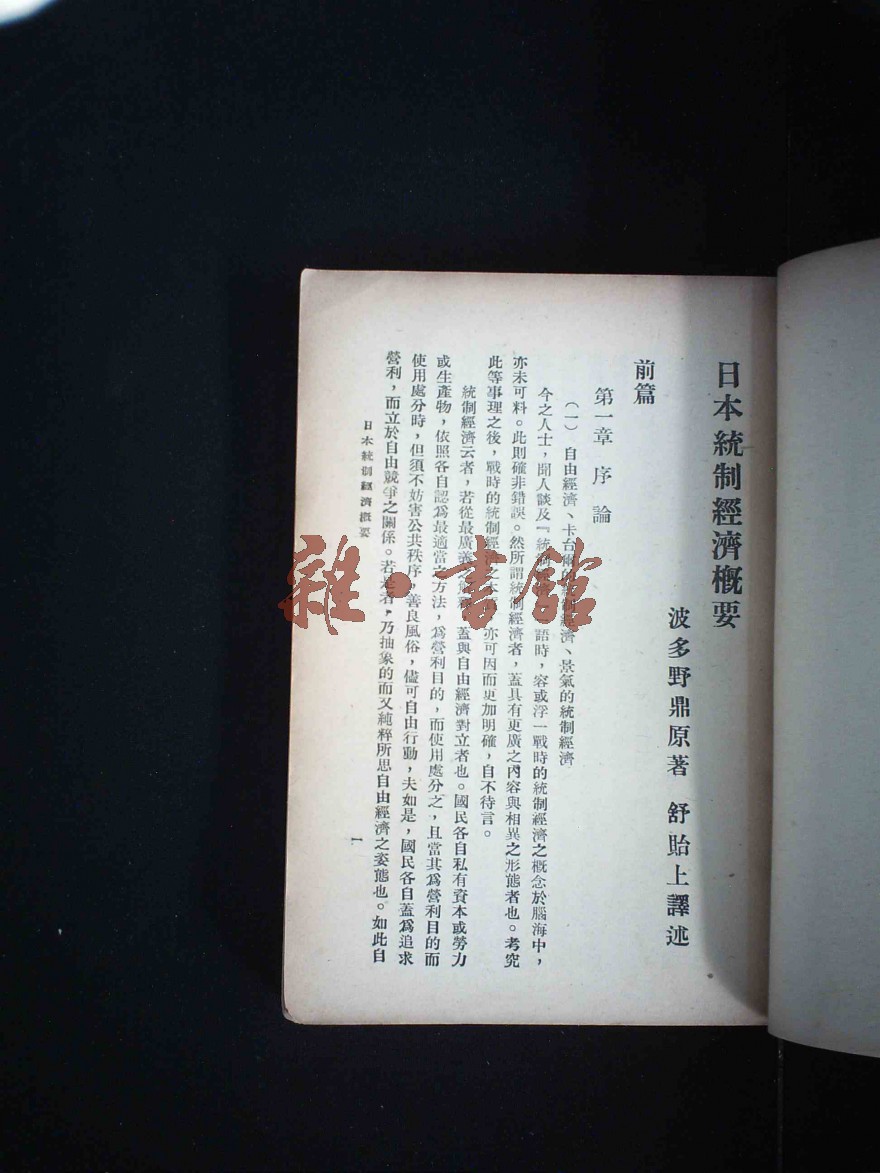 日本統制經濟概要
波多野鼎原著 舒貽上譯述
前篇
第一章 序論
(一) 自由經濟、卡台爾制經濟、景氣的統制經濟
今之人士，聞人談及『統制經濟』一語時，容或浮一戰時的統制經濟之概念於腦海中，
亦未可料。此則確非錯誤。然所謂統制經濟者，蓋具有更廣之內容與相異之形態者也。考究
此等事理之後，戰時的統制經濟之本亦可因而更加明確，自不待言。
統制經濟云者，若從最廣義解釋，蓋與自由經濟對立者也。國民各自私有資本或勞力
或生產物，依照各自認爲最適當之方法，爲營利目的，而使用處分之，且當其爲營利目的而
使用處分時，但須不妨害公共秩序，善良風俗，儘可自由行動，夫如是，國民各自蓋爲追求
營利，而立於自由競爭之關係。若是者，乃抽象的而又純粹所思自由經濟之姿態也。如此自
日本統制經濟概要
1
雜·書館